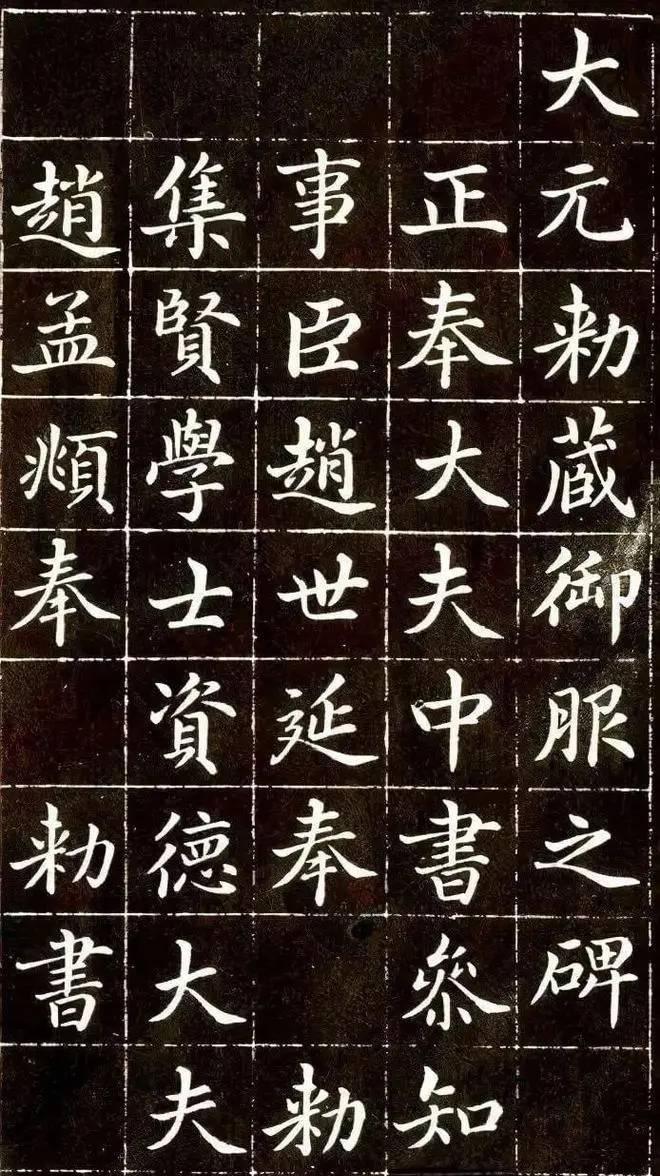 大元勑藏御服之碑
正奉大夫中書參知
事臣趙世延奉勑
集賢學士資德大夫
趙孟頫奉勑書